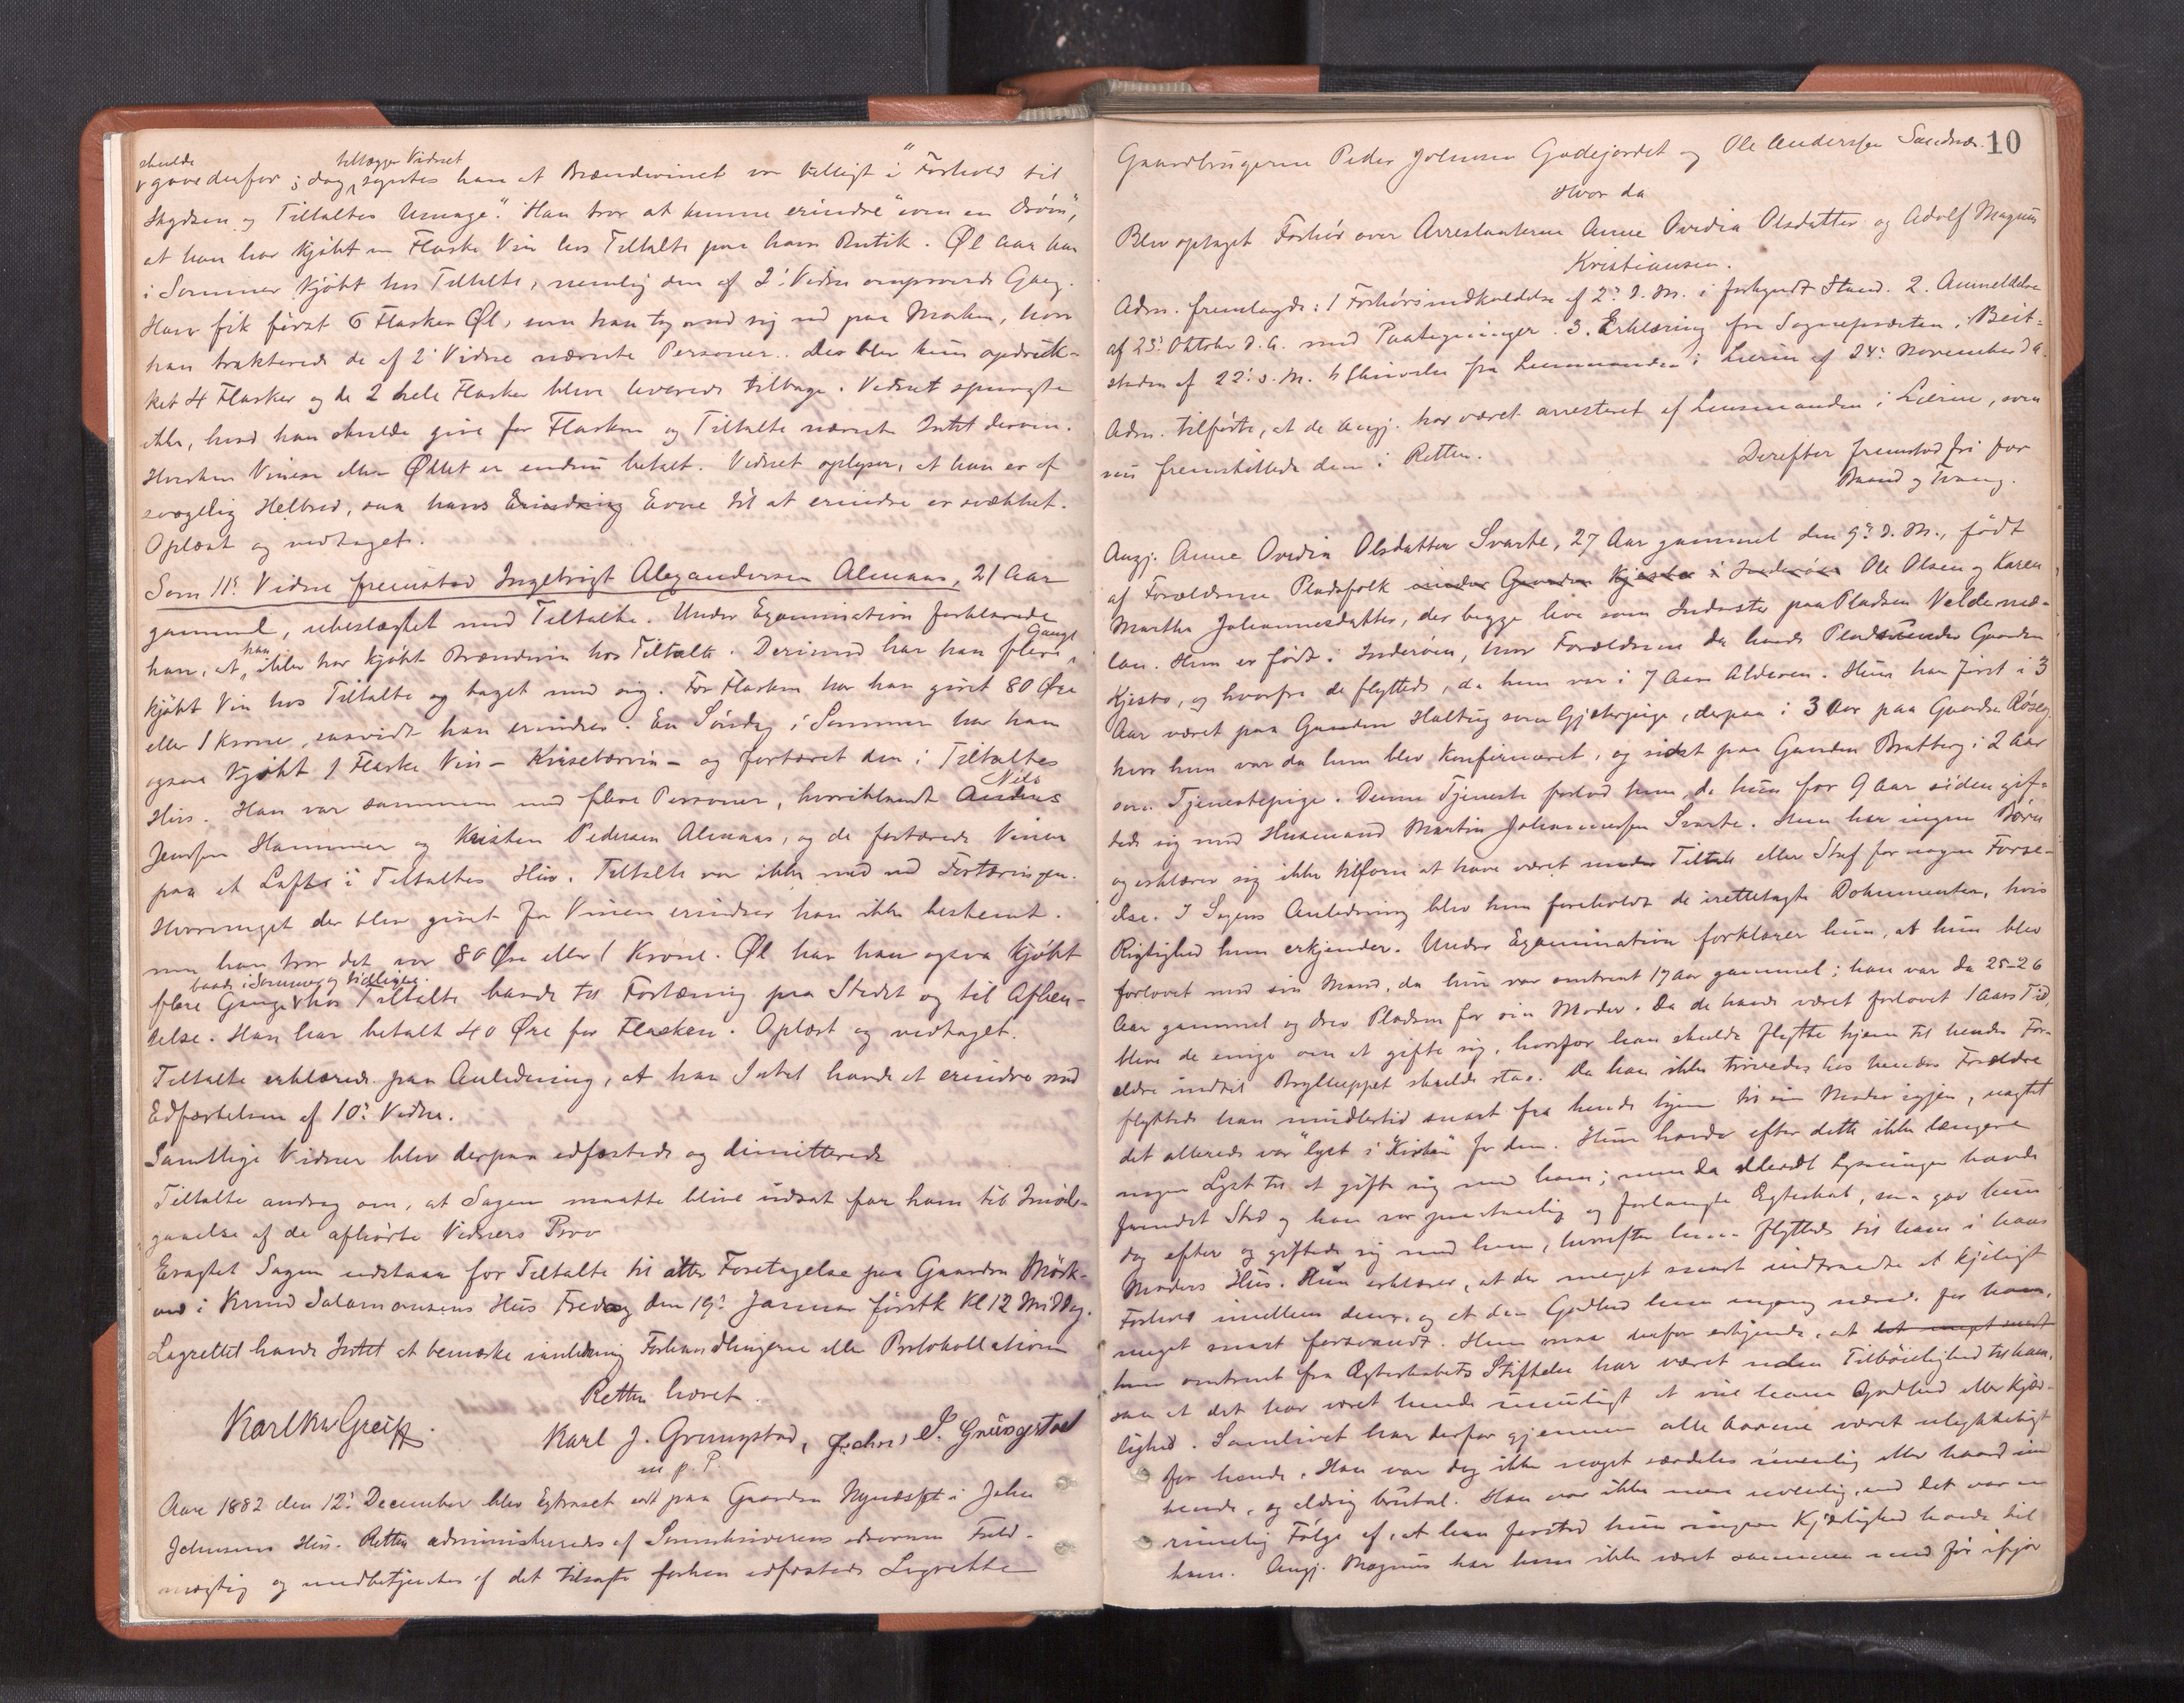 skulde tillægger Vidnet
gave derfor; dog syntes han at Brændevinet var billigt i "Forhold til
Skydsen og Tiltaltes Umage". Han tror at kunne erindre "som en Drøm",
at han har kjøbt en Flaske Vin hos Tiltalte paa hans Butik. Øl har han
i Sommer kjøbt hos Tiltalte, nemlig den af 2' Vidne omprovede Gang.
Han fik først 6 Flasker Øl, som han tog med sig ud paa Marken, hvor
han trakterede de af 2' Vidne nævnte Personer. Der blev kun opdruk-
ket 4 Flasker og de 2 hele Flasker bleve leverede tilbage. Vidnet spurgte
ikke, hvad han skulde give for Flasken og Tiltalte nævnte Intet derom.
Hverken Vinen eller Øllet er endnu betalt. Vidnet oplyser, at han er af
svagelig Helbred, saa hans Erindring Evne til at erindre er svækket.
Oplæst og vedtaget.
Som 11' Vidne fremstod Ingebrigt Alexandersen Almaas, 21 Aar
gammel, ubeslægtet med Tiltalte. Under Examination forklarede
han, at han ikke har kjøbt Brændevin hos Tiltalte. Derimod har han flere Gange
kjøbt Vin hos Tiltalte og taget med sig. For Flasken har han givet 80 Øre
eller 1 Krone, saavidt han erindrer. En Søndag i Sommer har han
ogsaa kjøbt 1 Flaske Vin - Kirsebærvin - og fortæret den i Tiltaltes
Hus. Han var sammen med flere Personer, hvoriblandt Anders Nils
Jensen Hammer og Kristen Pedersen Almaas, og de fortærede Vinen
paa et Loft i Tiltaltes Hus. Tiltalte var ikke med ved Fortæringen.
Hvormeget der blev givet for Vinen erindrer han ikke bestemt.
men han tror det var 80 Øre eller 1 Krone. Øl har han ogsaa kjøbt
baade i Sommer og tidligere
flere Gange hos Tiltalte baade til Fortæring paa Stedet og til Afhen-
telse. Han har betalt 40 Øre for Flasken. Oplæst og vedtaget.
Tiltalte erklærede paa Anledning, at han Intet havde at erindre mod
Edfæstelsen af 10' Vidne.
Samtlige Vidner blev derpaa edfæstede og dimitterede
Tiltalte androg om, at Sagen maatte blive udsat for ham til Imøde-
gaaelse af de afhørte Vidners Prov
Eragtet Sagen udstaar for Tiltalte til atter Foretagelse paa Gaarden Mørk-
ved i Knud Salamonsens Hus Fredag den 19' Januar førstk Kl 12 Middag.
Lagrettet havde Intet at bemærke ianledning Forhandlingerne eller Protokollationen
Retten hævet.
Karl Kr Greiff. Karl J. Grungstad, Johns P. Grungstad
m p. P.
Aar 1882 den 12' December blev Extraret sat paa Gaarden Nynæsset i John
Johnsens Hus. Retten administreredes af Sorenskriverens edsvorne Fuld-
mægtig og medbetjentes af det tilsagte forhen edfæstede Lagrette
10
Gaardbrugerne Peder Johnsen Gadejordet og Ole Andersen Sandnæs.
Hvor da
Blev optaget Forhør over Arrestanterne Anne Ovedia Olsdatter og Adolf Magnus
Kristiansen.
Adm. fremlagde: 1 Forhørsindkaldelse af 2' d. M. i forkyndt Stand. 2. Anmeldelse
af 25' Oktober d. A. med Paategninger. 3. Erklæring fra Sognepresten i Beit-
staden af 22' s. M. 4 Skrivelse fra Lensmanden i Lierne af 24' November d A.
Adm. tilførte, at de Angj. har været arresteret af Lensmanden i Lierne, som
nu fremstillede dem i Retten.
Derefter fremstod fri for
Baand og Tvang.
Angj. Anne Ovedia Olsdatter Svarte, 27 Aar gammel den 9' d. M., født
af Forældrene Pladsfolk under Gaarden Kjesbo i Inderøen Ole Olsen og Karen
Martha Johannesdatter, der begge leve som Inderster paa Pladsen Veldemæ-
len. Hun er født i Inderøen, hvor Forældrene da havde Plads under Gaarden
Kjesbo, og hvorfra de flyttede, da hun var i 7 Aars Alderen. Hun har først i 3
Aar været paa Gaarden Holtug som Gjæterpige, derpaa i 3 Aar paa Gaarden Røseg
hvor hun var da hun blev konfirmeret, og sidst paa Gaarden Bratberg i 2 Aar
som Tjenestepige. Denne Tjeneste forlod hun, da hun for 9 Aar siden gif-
tede sig med Husmand Martin Johannessen Svarte. Hun har ingen Børn
og erklærer sig ikke tilforn at have været under Tiltale eller Straf for nogen Forse-
else. I Sagens Anledning blev hun foreholdt de irettelagte Dokumenter, hvis
Rigtighed hun erkjender. Under Examination forklarer hun, at hun blev
forlovet med sin Mand, da hun var omtrent 17 Aar gammel; han var da 25-26
Aar gammel og drev Pladsen for sin Moder. Da de havde været forlovet 1 Aars Tid,
bleve de enige om at gifte sig, hvorfor han skulde flytte hjem til hendes For-
ældre indtil Brylluppet skulde staa. Da han ikke trivedes hos hendes Forældre
flyttede han imidlertid snart fra hende hjem til sin Moder igjen, uagtet
det allerede var "lyst i Kirken" for dem. Hun havde efter dette ikke længere
nogen Lyst til at gifte sig med ham; men da allerede Lysningen havde
fundet Sted og han var paastaaelig og forlangte Egteskab, saa gav hun
dog efter og giftede sig med ham, hvorefter hun flyttede til ham i hans
Moders Hus. Hun erklærer, at der meget snart indtraadte et kjøligt
Forhold imellem dem, og at den Godhed hun engang nærede for ham,
meget snart forsvandt. Hun maa derfor erkjende, at det meget snart
hun omtrent fra Ægteskabets Stiftelse har været uden Tilbøielighed til ham,
saa at det har været hende umuligt at vise ham Godhed eller Kjær-
lighed. Samlivet har derfor gjennem alle Aarene været ulykkeligt
for hende. Han var dog ikke noget særdeles uvenlig eller haard imod
hende, og aldrig brutal. Han var ikke mere uvenlig, end det var en
rimelig Følge af, at han forstod hun ingen Kjærlighed havde til
ham. Angj. Magnus har hun ikke været sammen med før ifjor